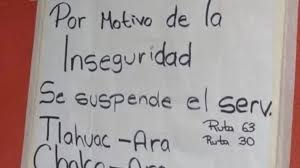 Por Motivo de la
Inseguridad
Se suspende el serv.
Tlahuac - Ara Ruta 63
Ruta 30
Chalco - Ara